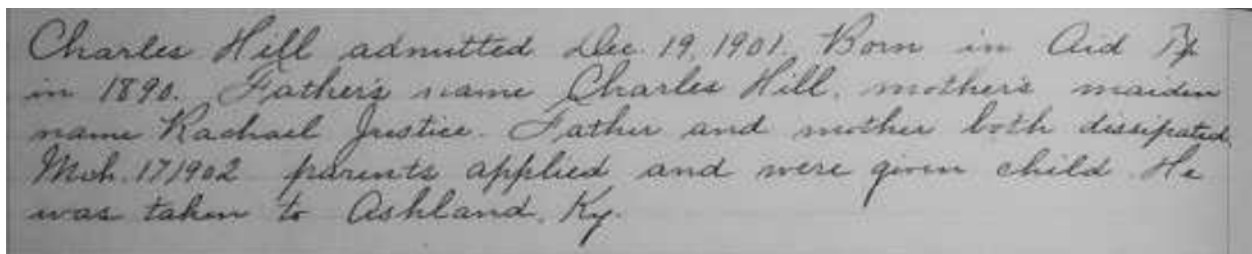 Charles Hill admitted Dec. 19, 1901. Born in Aid Tp
in 1890. Father's name Charles Hill. mother's maiden
name Rachael Justice. Father and mother both dissipated
Mch. 17 1902 parents applied and were given child. He
was taken to Ashland, Ky.